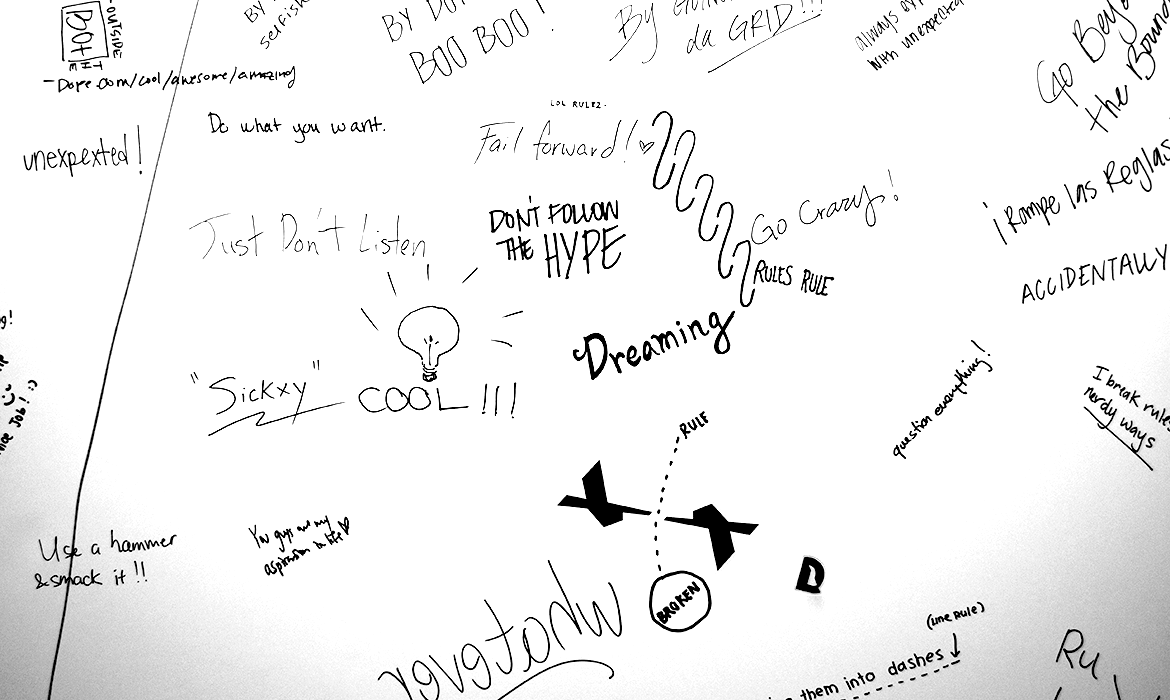 OUTSIDE
BOX
THE
-Dope.com/cool/awesome/amazing
BY
selfish
BY
BOO BOO!
By
da GRID!!!
always
with unexpected
Go Beyo
the Boun
LOL RULEZ.
Do what you want.
Fail forward!
unexpexted!
Just Don't Listen
DON'T FOLLOW
THE HYPE
Go Crazy!
RULES RULE
¡Rompe las Reglas
ACCIDENTALLY
Dreaming
"Sickxy"
COOL!!!
question everything!
I break rules
nerdy ways
Job! :)
RULE
BROKEN
Use a hammer
& smack it!!
You guys are my
aspiration in life
D
whatever
(line Rule)
them into dashes
Ru